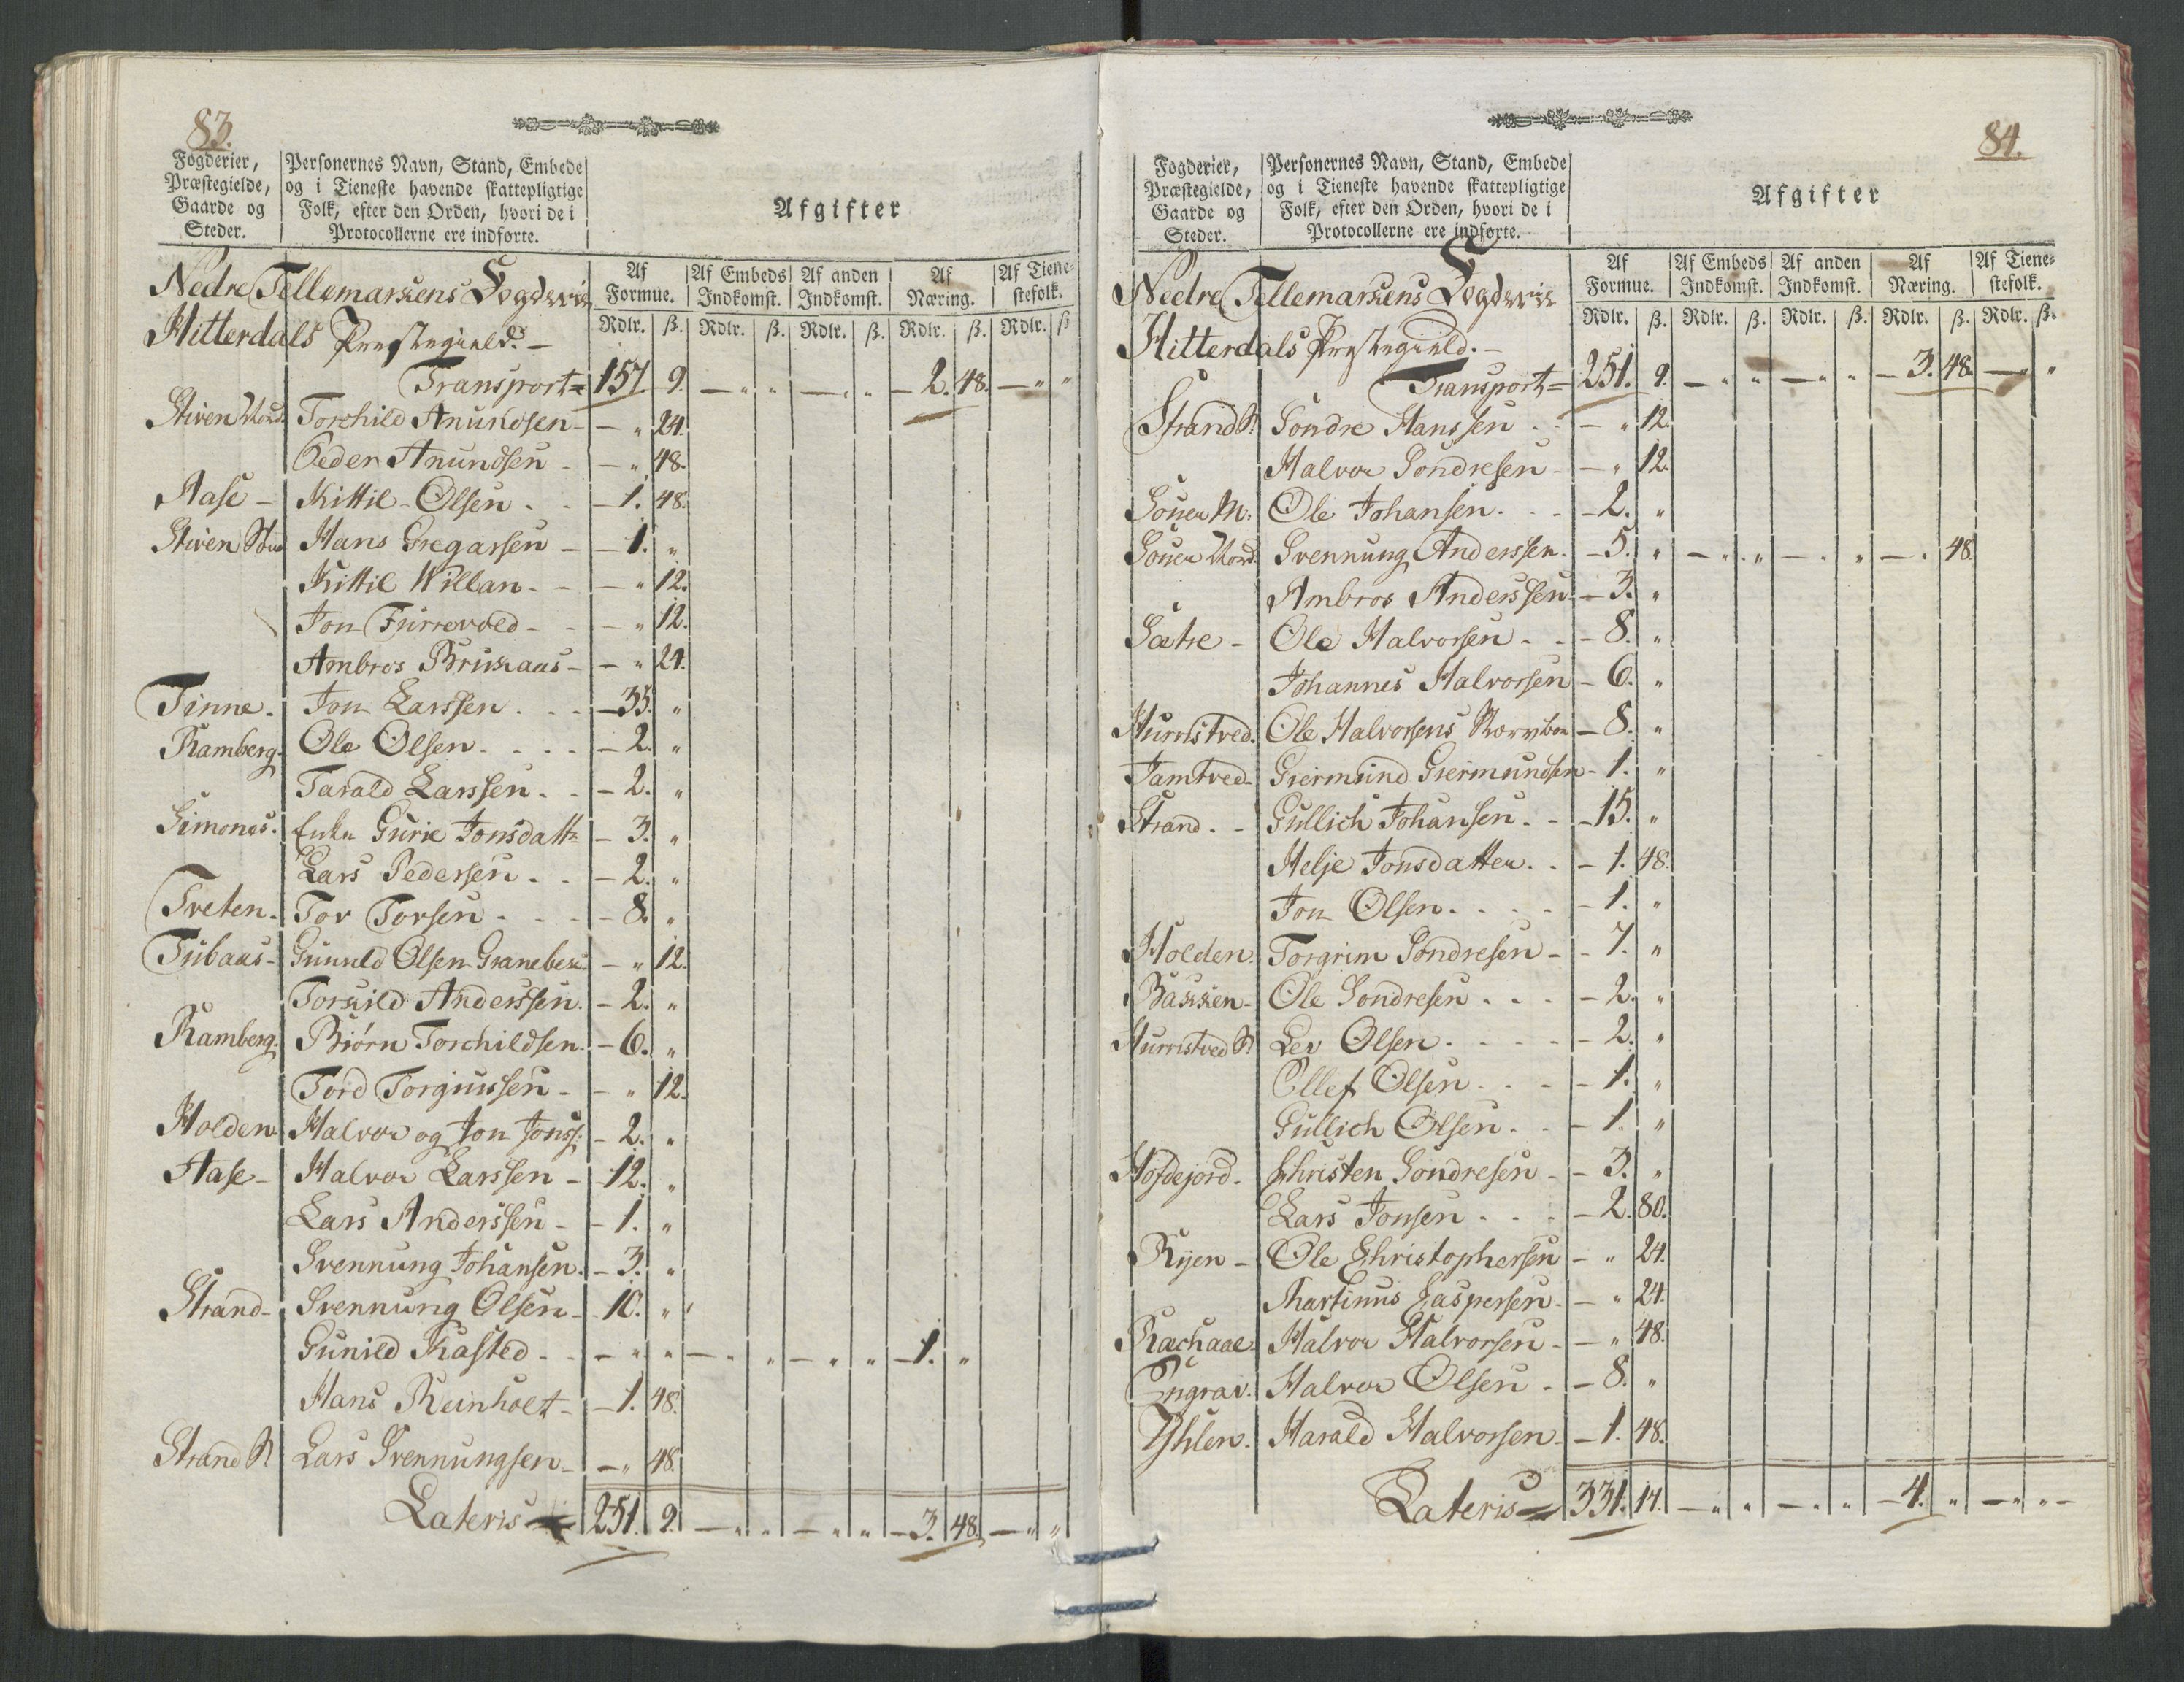 83.
Fogderier, Præstegielde, Gaarde og Steder.
Personernes Navn, Stand, Embede og i Tieneste havende skattepligtige Folk, efter den Orden, hvori de i Protocollerne ere indførte.
Afgifter
Af Formue. Af Embeds Indkomst. Af anden Indkomst. Af Næring. Af Tienestefolk.
Rdlr. ß. Rdlr. ß. Rdlr. ß. Rdlr. ß. Rdlr. ß
Nedre Tellemarkens Fogderie
Hitterdals Præstegield. -
Transport = 157. 9. - " " - " " - 2. 48. - " "
Stiven Nord. Torchild Anundsen - - " 24.
Peder Anundsen - - " 48.
Aase - Kittil Olsen - 1. 48.
Stiven Hans Gregarsen - - 1. "
Kittil Willan - - " 12.
Jon Furrevold - - " 12.
Ambros Brukaas - - " 24.
Tinne. Jon Larssen - 35. "
Ramberg. Ole Olsen - 2. "
Tarald Larssen - 2. "
Simones. Enke Gurie Jonsdattr - 3. "
Lars Pedersen - 2. "
Treten. Tor Torsen - 8. "
Tubaas - Gunuld Olsen Granebek - " 12.
Torkild Anderssen - 2. "
Ramberg. Biørn Torchildsen - 6. "
Tord Torgiussen - - " 12.
Holden Halvor og Jon Jonss: - 2. "
Aase - Halvor Larssen - 12. "
Lars Anderssen - - 1. "
Svennung Johansen - 3. "
Strand - Svennung Olsen - 10. "
Gunild Kasted - - " " - " " - " " - 1. "
Hans Reinholt - 1. 48.
Strand Lars Svennungsen - - " 48.
Lateris = 251. 9. - " " - " " - 3. 48. - " "
84.
Fogderier, Præstegielde, Gaarde og Steder.
Personernes Navn, Stand, Embede og i Tieneste havende skattepligtige Folk, efter den Orden, hvori de i Protocollerne ere indførte.
Afgifter
Af Formue. Af Embeds Indkomst. Af anden Indkomst. Af Næring. Af Tienestefolk.
Rdlr. ß. Rdlr. ß. Rdlr. ß. Rdlr. ß. Rdlr. ß.
Nedre Tellemarkens Fogderie
Hitterdals Præstegield. -
Transport = 251. 9. - " " - " " - 3. 48. - " "
Strand Sondre Hanssen - " 12.
Halvor Sondresen - - " 12.
Souer M: Ole Johansen - 2. "
Souer Nord. Svennung Anderssen - 5. " - " " - " " - " 48.
Ambros Anderssen - 3. "
Sætre - Ole Halvorsen - 8. "
Johannes Halvorsen - 6. "
Hurristved. Ole Halvorsens - 8. "
Jamtved - Giermund Giermundsen - 1. "
Strand - Gullich Johansen - 15. "
Helje Jonsdatter - 1. 48.
Jon Olsen - 1. "
Holden. Torgrim Sondresen - 7. "
Bakken - Ole Sondresen - 2. "
Hurristved Lev Olsen - 2. "
Ellef Olsen - 1. "
Gullich Olsen - 1. "
Hofdejord - Christen Sondresen - 3. "
Lars Jonsen - 2. 80.
Ryen - Ole Christophersen - " 24.
Martinus Jaspersen - " 24.
Halvor Halvorsen - " 48.
Halvor Olsen - 8. "
Yhlen. Harald Halvorsen - 1. 48.
Lateris = 331. 17. - " " - " " - 4. " - " " -